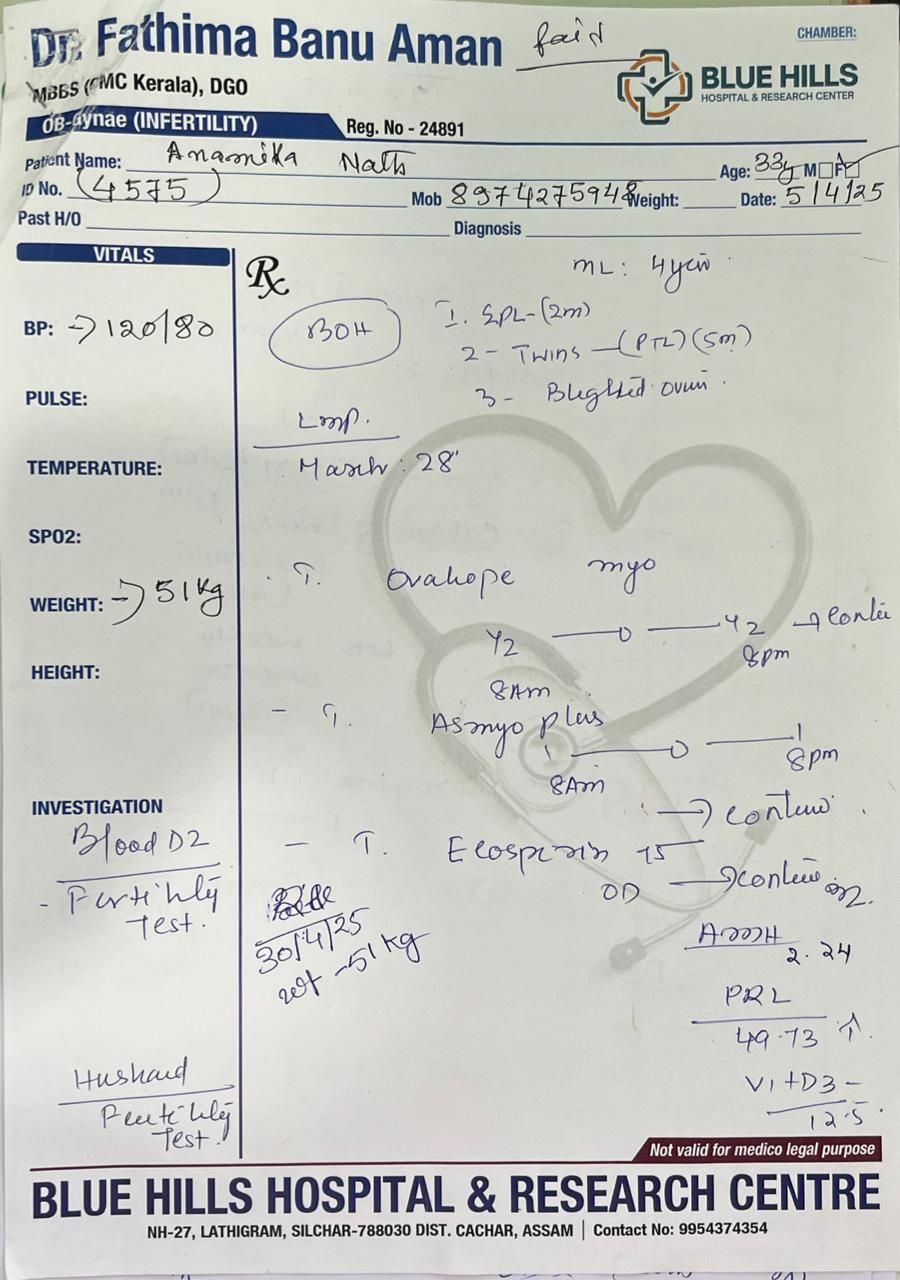 Dr. Fathima Banu Aman
paid
CHAMBER:
MBBS (CMC Kerala), DGO
BLUE HILLS
HOSPITAL & RESEARCH CENTER
OB-Gynae (INFERTILITY)
Reg. No - 24891
Patient Name: Anamika Nath
Age: 33y M F
ID No. (4575)
Mob 8974275948 Weight:
Date: 5/4/25
Past H/O
Diagnosis
VITALS
Rx
ML: 4year
BP: → 120/80
BOH
1. SPL-(2m)
2 - Twins - (PTL) (5m)
3 - Blighted ovum.
PULSE:
Lmp.
TEMPERATURE:
March: 28'
SPO2:
T. Ovahope myo
WEIGHT: → 51kg
1/2 — 0 — 1/2 →
8Am 8pm
HEIGHT:
- T. Asmyo plus
1 — 0 — 1
8Am 8pm
→ continue
INVESTIGATION
Blood D2
- Fertility
Test.
- T. Ecosprin 75
OD → continue
30/4/25
wt - 51kg
AMH
2.24
PRL
49.73 ↑.
Vit D3 -
12.5.
Husband
Fertility
Test.
Not valid for medico legal purpose
BLUE HILLS HOSPITAL & RESEARCH CENTRE
NH-27, LATHIGRAM, SILCHAR-788030 DIST. CACHAR, ASSAM | Contact No: 9954374354